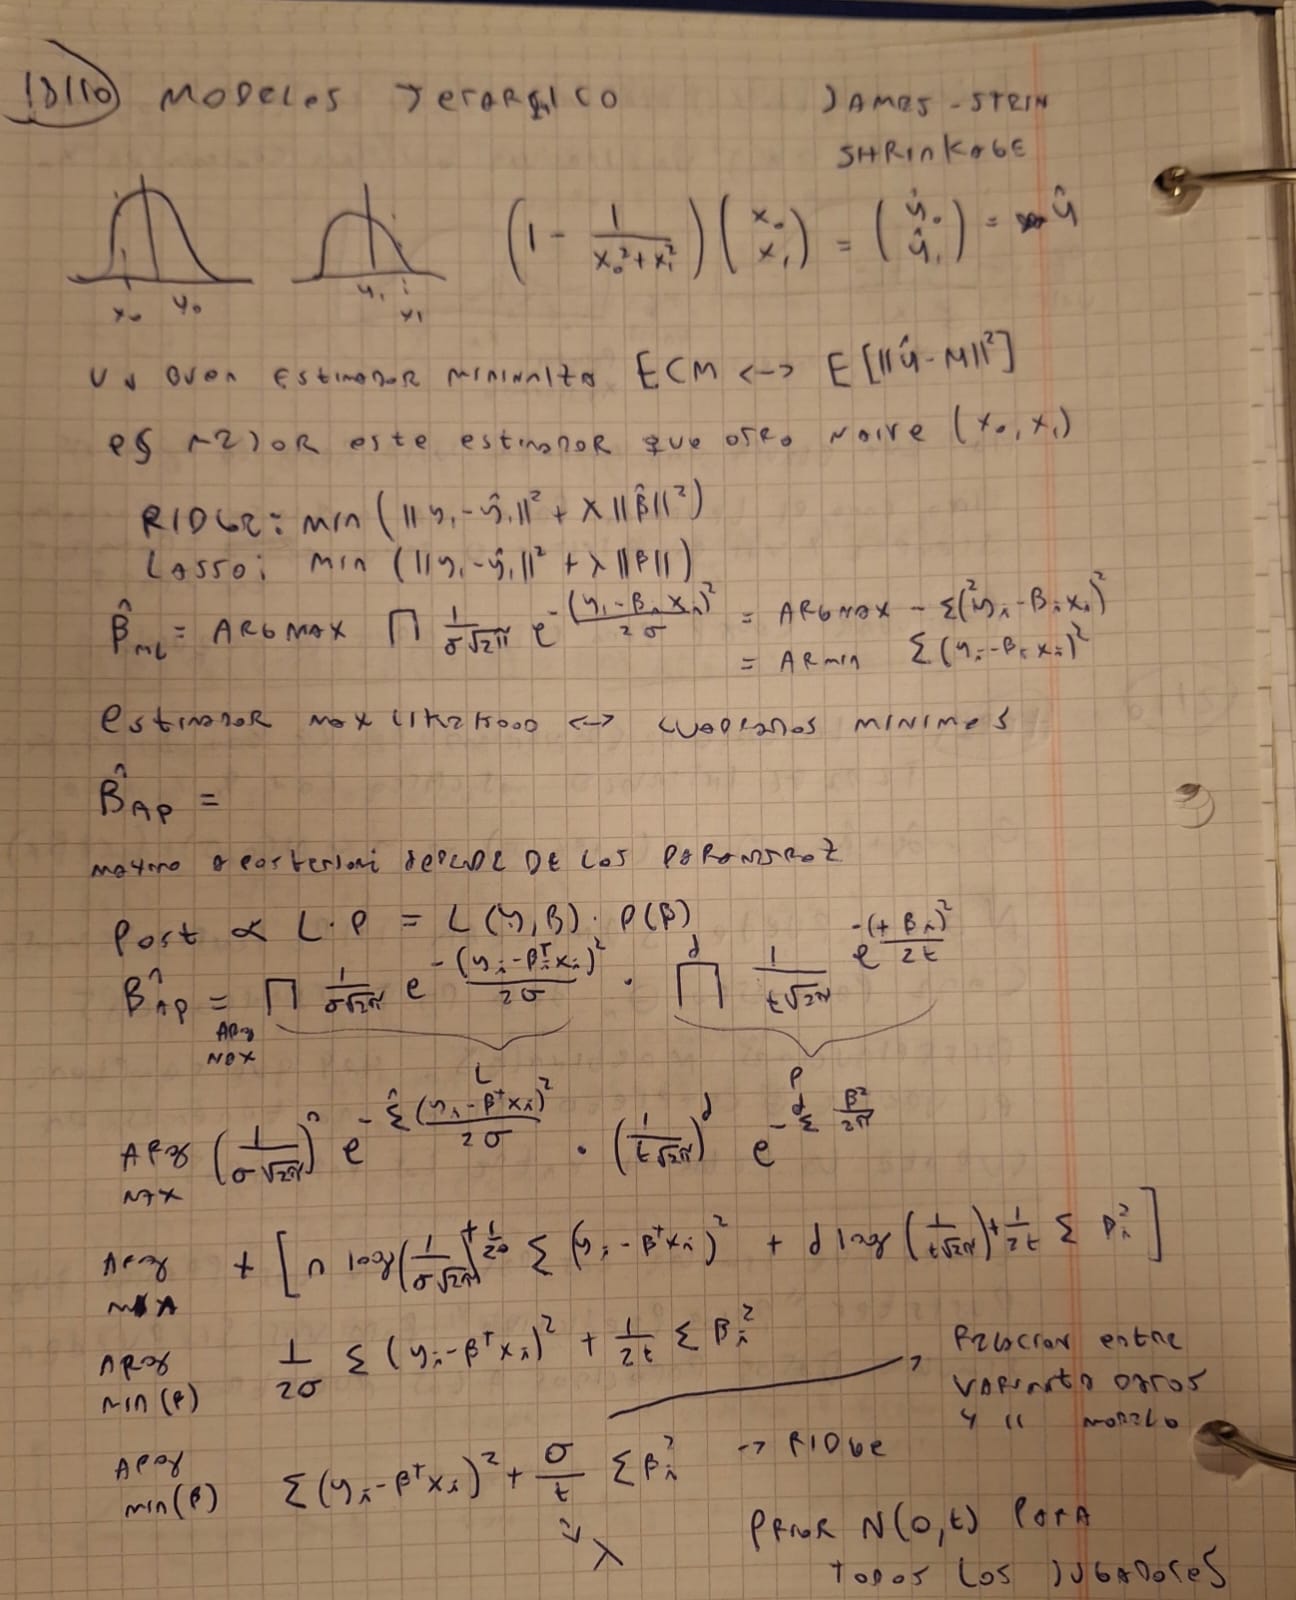 18/10 MODELOS JERARQUICO
JAMES-STEIN
SHRINKAGE
(1 - 1/(x₀²+x₁²)) (x₀ x₁) = (ŷ₀ ŷ₁) = ŷ
x₀ y₀
y₁ x₁
UN BUEN ESTIMADOR MINIMIZA ECM <-> E[||ŷ-M||²]
es MEJOR este estimador que otro NAIVE (x₀, x₁)
RIDGE: min (||y₁-ŷ₁||² + λ||β̂||²)
Lasso: min (||y₁-ŷ₁||² + λ||β||)
β̂_ML = ARGMAX ∏ 1/(σ√2π) e^(-(y₁-βᵢxᵢ)²/2σ) = ARGMAX - Σ(yᵢ-βᵢxᵢ)²
= ARmin Σ(yᵢ-βᵢxᵢ)²
estimador max likelihood <-> cuadrados minimos
β̂_AP =
maximo a posteriori depende de los
Post ∝ L·P = L(y,β)·P(β)
β̂_AP = Arg MAX ∏ 1/(σ√2π) e^(-(yᵢ-βᵢᵀxᵢ)²/2σ) · ∏^d 1/(t√2π) e^(-(+βᵢ)²/2t)
L P
Arg MAX (1/(σ√2π))^n e^(-Σ^n (yᵢ-βᵀxᵢ)²/2σ) · (1/(t√2π))^d e^(-Σ^d β²/2π)
Arg + [n log(1/(σ√2π)) + 1/2σ Σ(yᵢ-βᵀxᵢ)² + d log(1/(t√2π)) + 1/2t Σ βᵢ²]
Arg min(β) 1/2σ Σ(yᵢ-βᵀxᵢ)² + 1/2t Σ βᵢ²
Relacion entre
varianza datos
y " modelo
Arg min(β) Σ(yᵢ-βᵀxᵢ)² + σ/t Σβᵢ² -> RIDGE
λ
PRIOR N(0,t) PARA
TODOS LOS JUGADORES